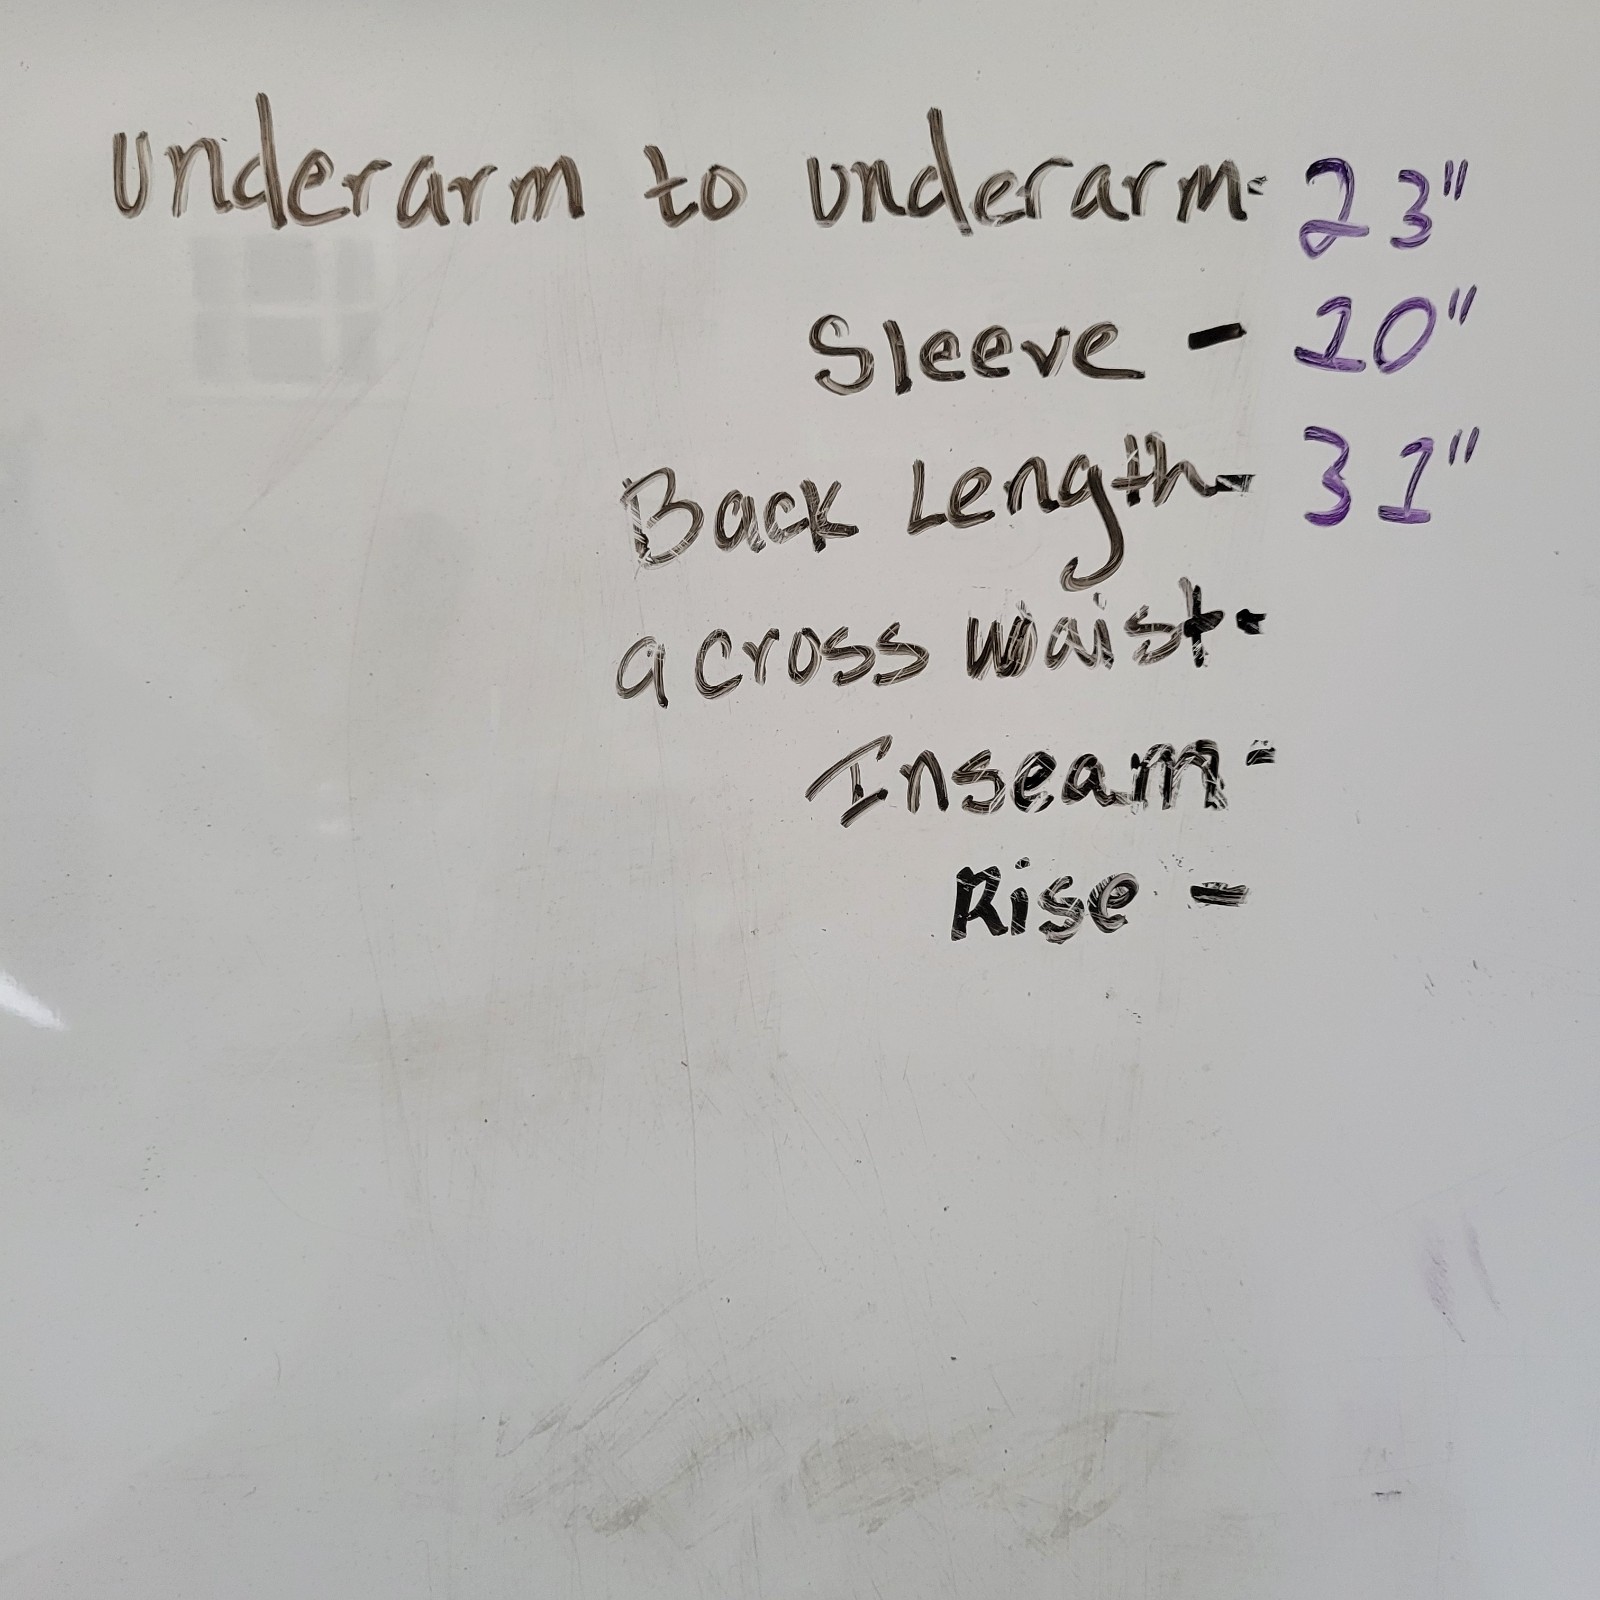 Underarm to underarm- 23"
Sleeve - 10"
Back Length- 31"
across waist-
Inseam-
Rise -